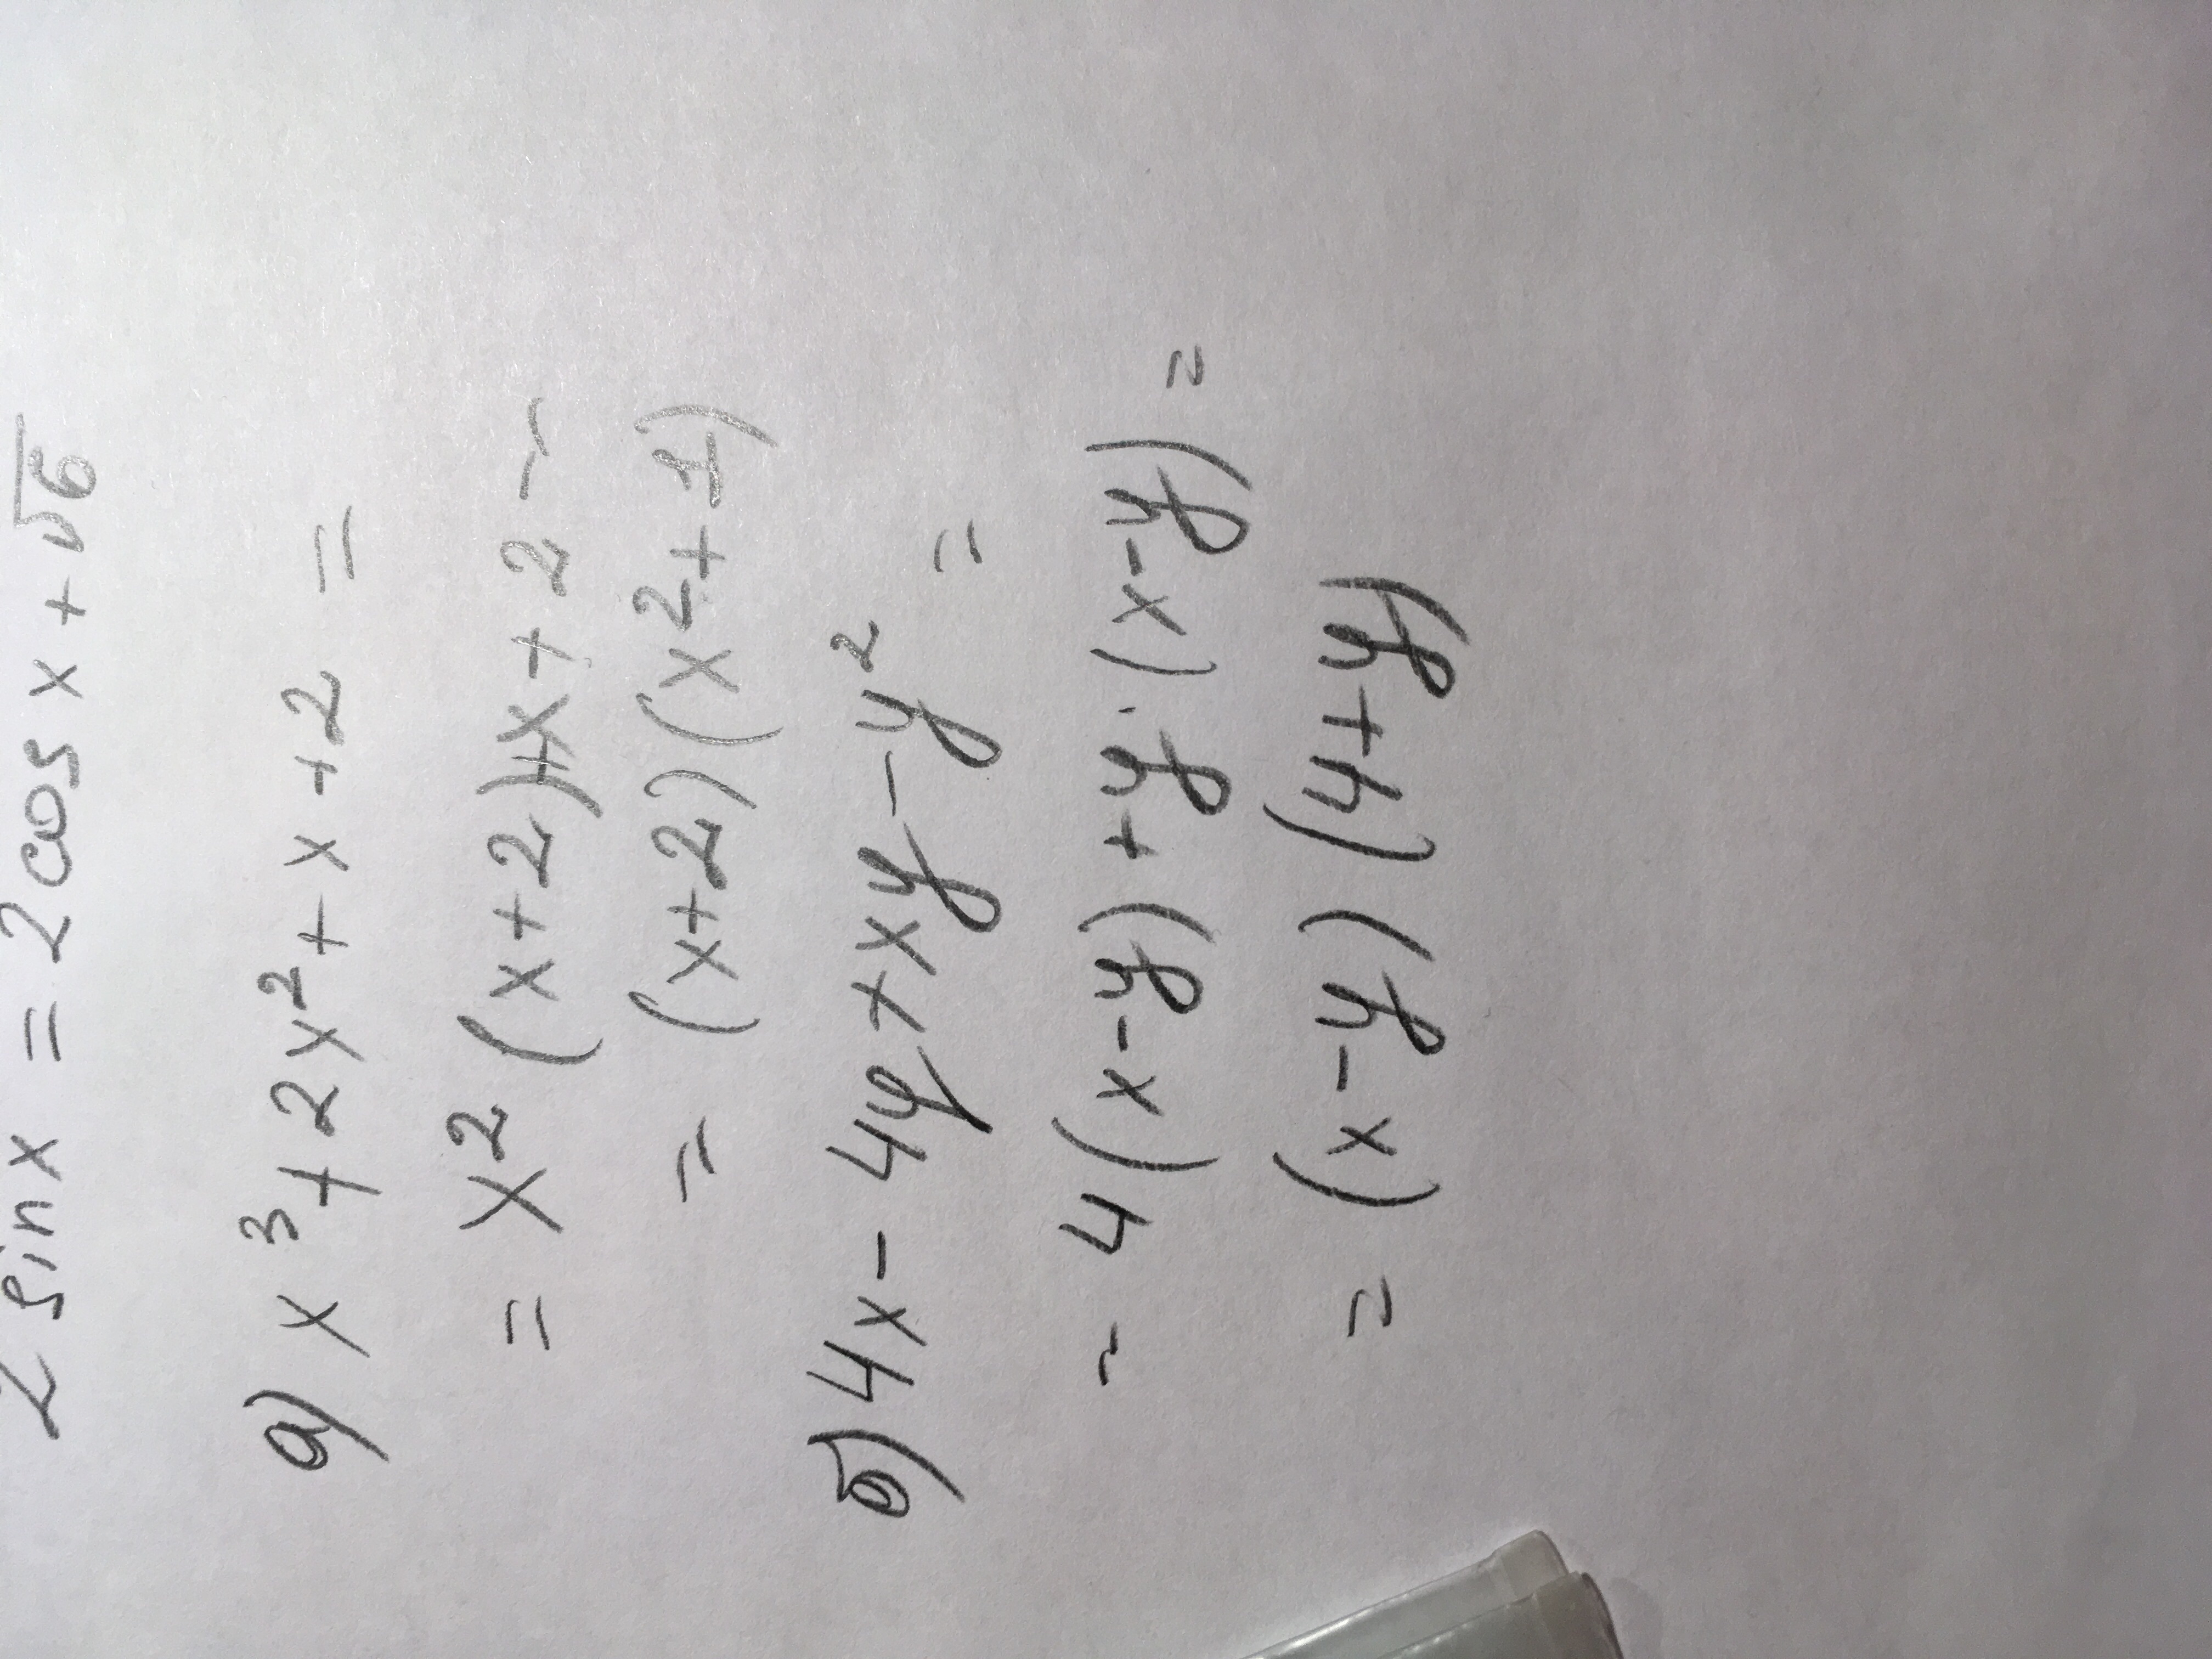 2 sin x = 2 cos x + √6
а) x³ + 2x² + x + 2 =
= x² (x + 2) + x + 2 =
= (x + 2) (x² + 1)
б) 4x - 4y + xy - y² =
= 4 (x - y) + y · (x - y) =
= (x - y) (4 + y)